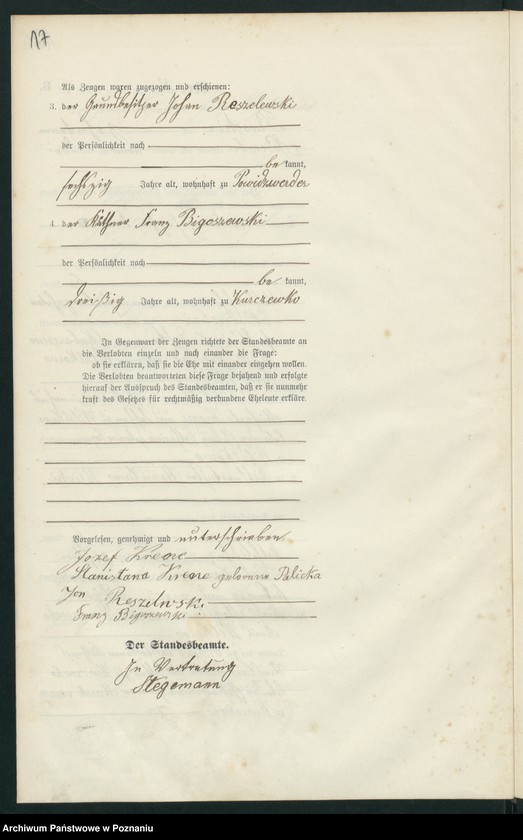 17
Als Zeugen waren zugezogen und erschienen:
3. der Grundbesitzer Johan Reszelewski
der Persönlichkeit nach
be kannt,
sechszig Jahre alt, wohnhaft zu Powidzwerder
4. der Käthner Franz Bigoszewski
der Persönlichkeit nach
be kannt,
dreißig Jahre alt, wohnhaft zu Kurczewko
In Gegenwart der Zeugen richtete der Standesbeamte an
die Verlobten einzeln und nach einander die Frage:
ob sie erklären, daß sie die Ehe mit einander eingehen wollen.
Die Verlobten beantworteten diese Frage bejahend und erfolgte
hierauf der Ausspruch des Standesbeamten, daß er sie nunmehr
kraft des Gesetzes für rechtmäßig verbundene Eheleute erkläre.
Vorgelesen, genehmigt und unterschrieben
Jozef Krenc
Krenc geborene
Jon Reszelewski
Franz Bigoszewski
Der Standesbeamte.
In Vertretung
Stegemann
Archiwum Państwowe w Poznaniu
szukajwarchiwach.gov.pl